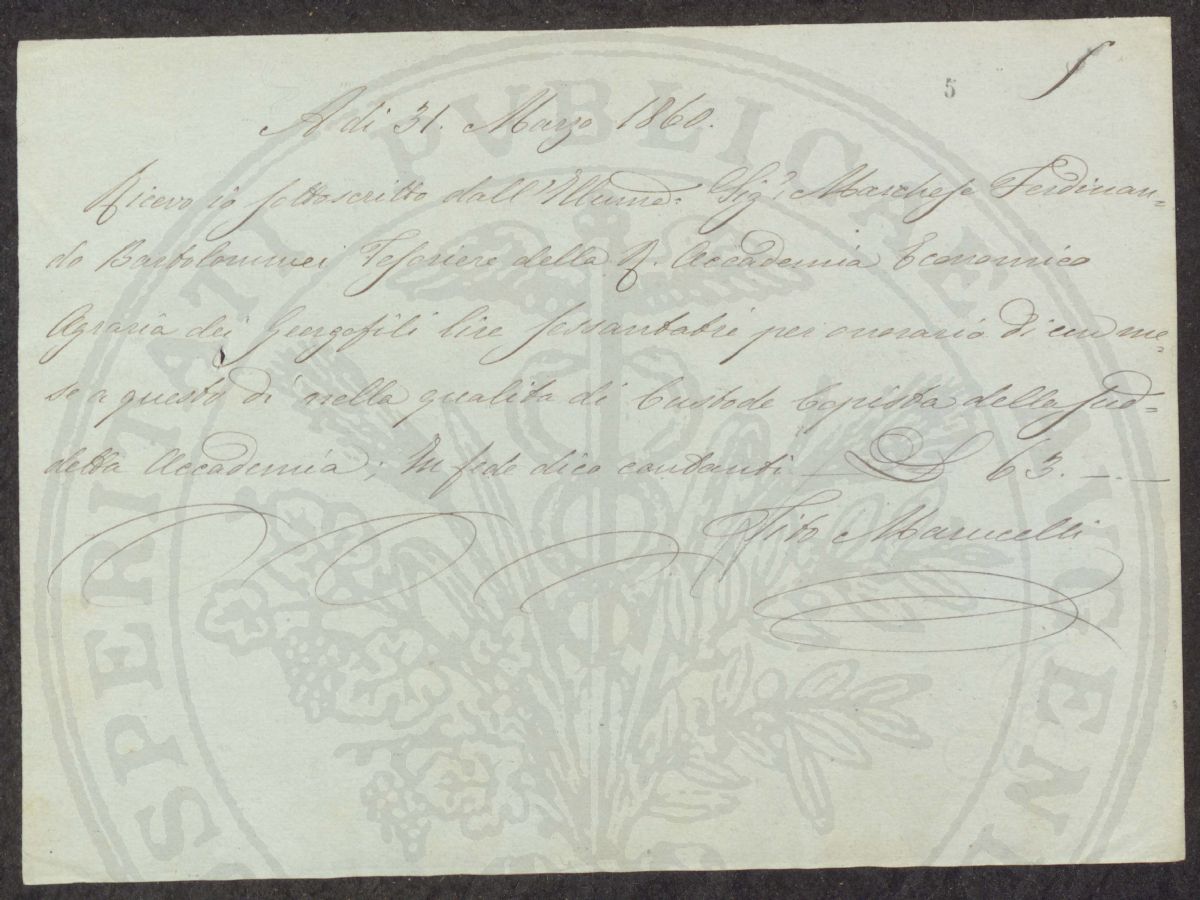 5
A dì 31. Marzo 1860.
Ricevo io sottoscritto dall'Illumo. Sigr. Marchese Ferdinan=
do Bartolommei Tesoriere della R. Accademia Economico
Agraria dei Geogofili lire sessantatre per onorario di un me=
se a questo dì nella qualità di Custode Copista della sud=
detta Accademia; In fede dico contanti — L 63. — . —
Tito Marucelli
PROSPERITATI PVBLICAE AVGENDAE